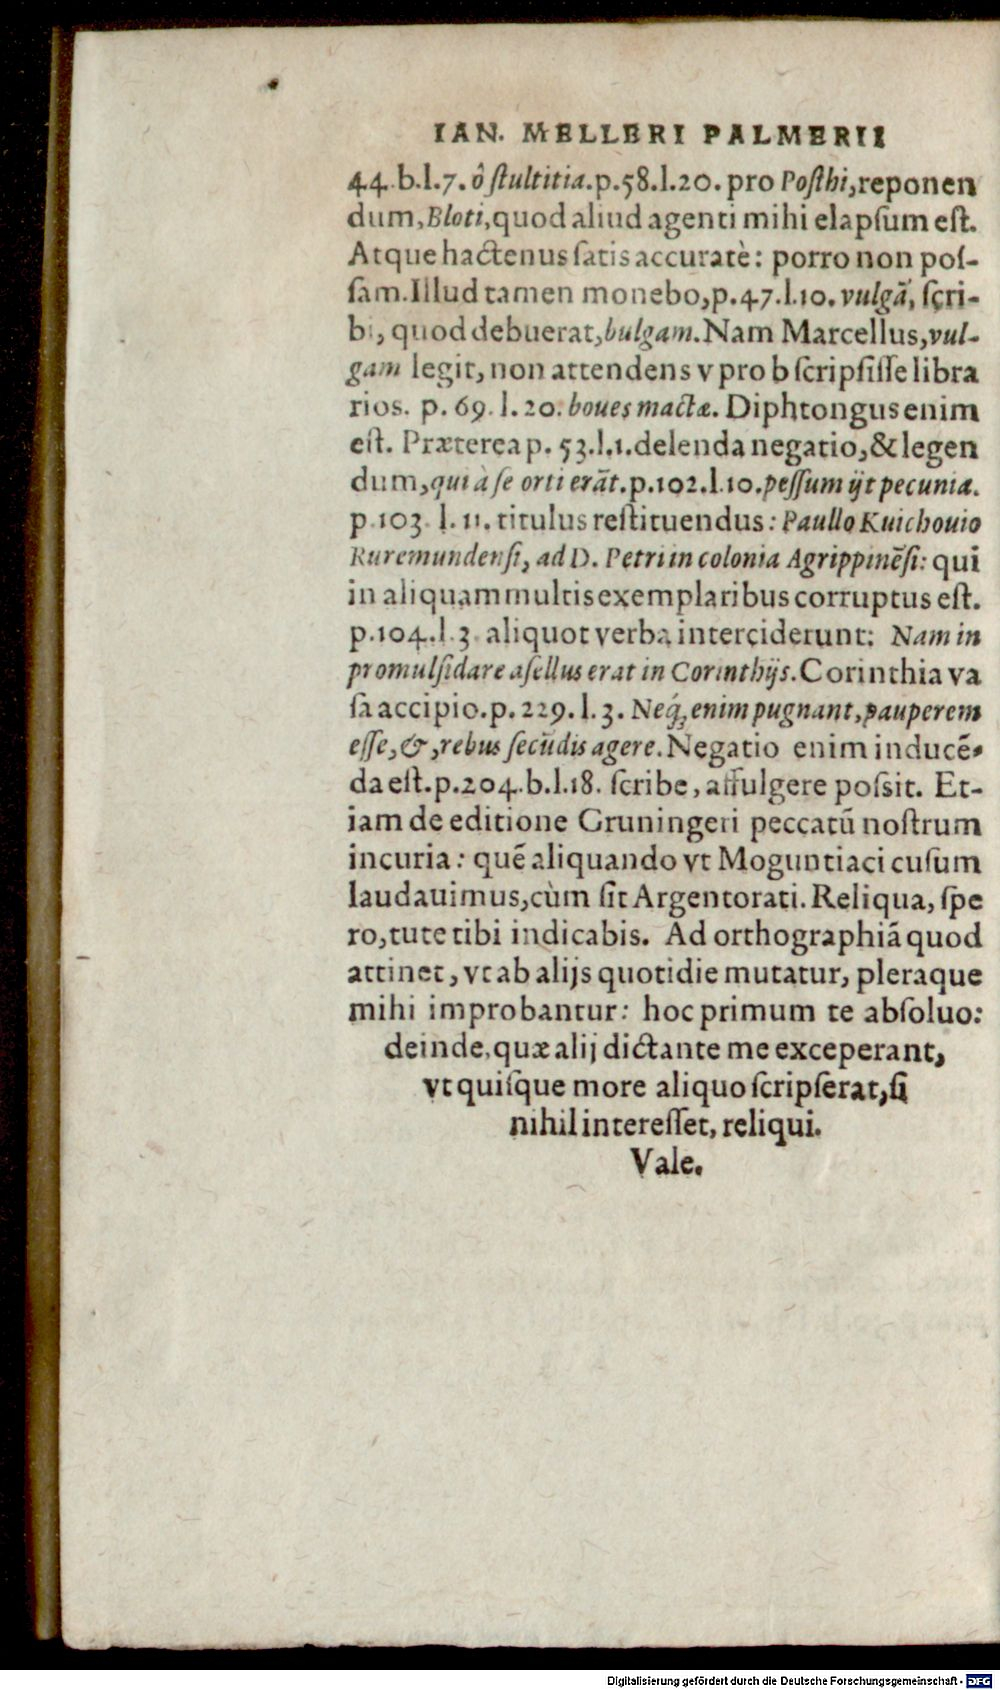 IAN. MELLERI PALMERII
44. b.l.7. ô ſtultitia. p.58.l.20. pro Poſthi, reponen
dum, Bloti, quod aliud agenti mihi elapſum eſt.
Atque hactenus ſatis accuratè: porro non poſ-
ſam. Illud tamen monebo, p.47.l.10. vulgã, ſcri-
bi, quod debuerat, bulgam. Nam Marcellus, vul-
gam legit, non attendens v pro b ſcripſiſſe libra
rios. p. 69. l. 20. boues mactæ. Diphtongus enim
eſt. Præterea p. 53.l.1. delenda negatio, & legen
dum, qui à ſe orti erãt. p.102.l.10. peſſum ijt pecunia.
p.103. l. 11. titulus reſtituendus: Paullo Kuichouio
Ruremundenſi, ad D. Petri in colonia Agrippinẽſi: qui
in aliquam multis exemplaribus corruptus eſt.
p.104.l.3. aliquot verba interciderunt: Nam in
promulſidare aſellus erat in Corinthijs. Corinthia va
ſa accipio. p. 229. l. 3. Neq́; enim pugnant, pauperem
eſſe, &, rebus ſecũdis agere. Negatio enim inducẽ-
da eſt. p.204.b.l.18. ſcribe, affulgere poſsit. Et-
iam de editione Gruningeri peccatũ noſtrum
incuria: quẽ aliquando vt Moguntiaci cuſum
laudauimus, cùm ſit Argentorati. Reliqua, ſpe
ro, tute tibi indicabis. Ad orthographiã quod
attinet, vt ab alijs quotidie mutatur, pleraque
mihi improbantur: hoc primum te abſoluo:
deinde, quæ alij dictante me exceperant,
vt quiſque more aliquo ſcripſerat, ſi
nihil intereſſet, reliqui.
Vale.
Digitalisierung gefördert durch die Deutsche Forschungsgemeinschaft - DFG